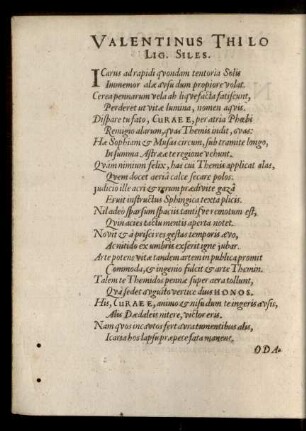 VALENTINUS THILO
LIG. SILES.
ICarus ad rapidi quondam tentoria Solis
Immemor alæ ausu dum propiore volat.
Cerea pennarum vela ah liquefacta fatiscunt,
Perderet ut vitæ lumina, nomen aquis.
Dispare tu fato, CURAEE, per atria Phœbi
Remigio alarum, quas Themis indit, ovas:
Hæ Sophiam & Musas circum, sub tramite longo,
In summa Astrææ te regione vehunt.
Quàm nimium felex, hai cui Themis applicat alas,
Quem docet aeriâ calce secare polos.
Judicio ille acri & rerum prædivite gazâ
Eruit instructus Sphingica texta plicis.
Nil adeo sparsum sparsis tantisve remotum est,
Quin acies tacitu mentis aperta notet.
Novit & à priscis res gestas tempore sævo,
Ac nitido ex umbris exserit igne jubar.
Arte potens vitæ tandem artem in publica promit
Commoda, & ingenio fulcit & arte Themin.
Talem te Themidos pennæ super æra tollunt,
Quà sedet augusto vertice dius HONOS.
His, CURAEE, animo & nisu dum te ingeris ausis,
Alis Dædaleis nitere, victor eris.
Nam quos incautos fert avra tumentibus alis,
Icarea hos lapsu præpete fata manent.
ODA-